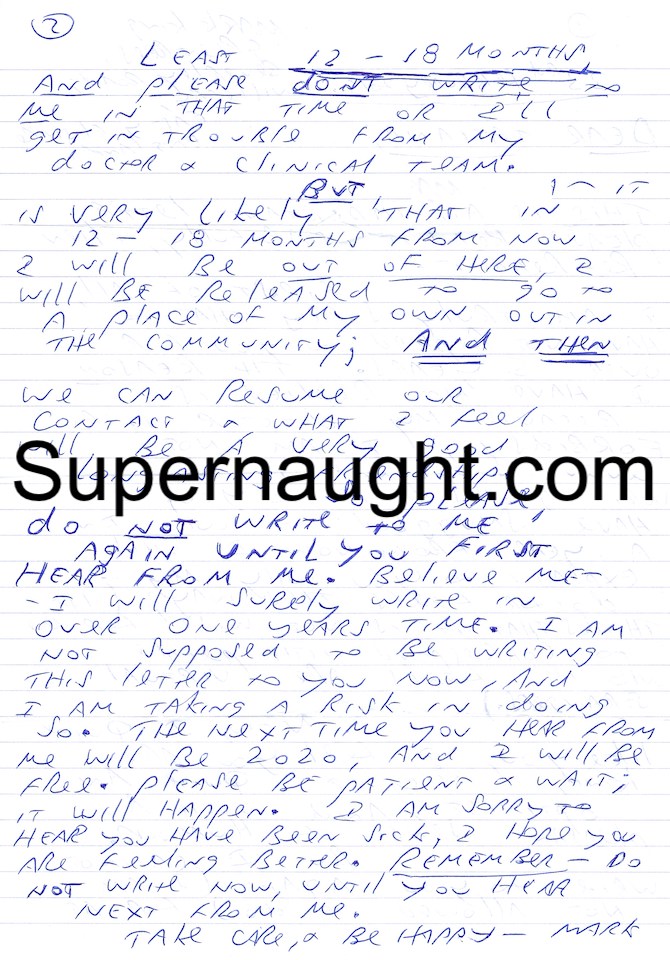 2
LEAST 12 - 18 MONTHS,
AND PLEASE DONT WRITE TO
ME IN THAT TIME OR I'LL
GET IN TROUBLE FROM MY
DOCTOR & CLINICAL TEAM.
BUT, 1 - IT
IS VERY LIKELY THAT IN
12 - 18 MONTHS FROM NOW
I WILL BE OUT OF HERE, I
WILL BE RELEASED TO GO TO
A PLACE OF MY OWN OUT IN
THE COMMUNITY; AND THEN
WE CAN RESUME OUR
CONTACT & WHAT I FEEL
WILL BE A VERY GOOD
Supernaught.com
LONG LASTING FRIENDSHIP.
SO PLEASE
DO NOT WRITE TO ME
AGAIN UNTIL YOU FIRST
HEAR FROM ME. BELIEVE ME-
- I WILL SURELY WRITE IN
OVER ONE YEARS TIME. I AM
NOT SUPPOSED TO BE WRITING
THIS LETTER TO YOU NOW, AND
I AM TAKING A RISK IN DOING
SO. THE NEXT TIME YOU HEAR FROM
ME WILL BE 2020, AND I WILL BE
FREE. PLEASE BE PATIENT & WAIT;
IT WILL HAPPEN. I AM SORRY TO
HEAR YOU HAVE BEEN SICK, I HOPE YOU
ARE FEELING BETTER. REMEMBER - DO
NOT WRITE NOW, UNTIL YOU HEAR
NEXT FROM ME.
TAKE CARE, & BE HAPPY - MARK